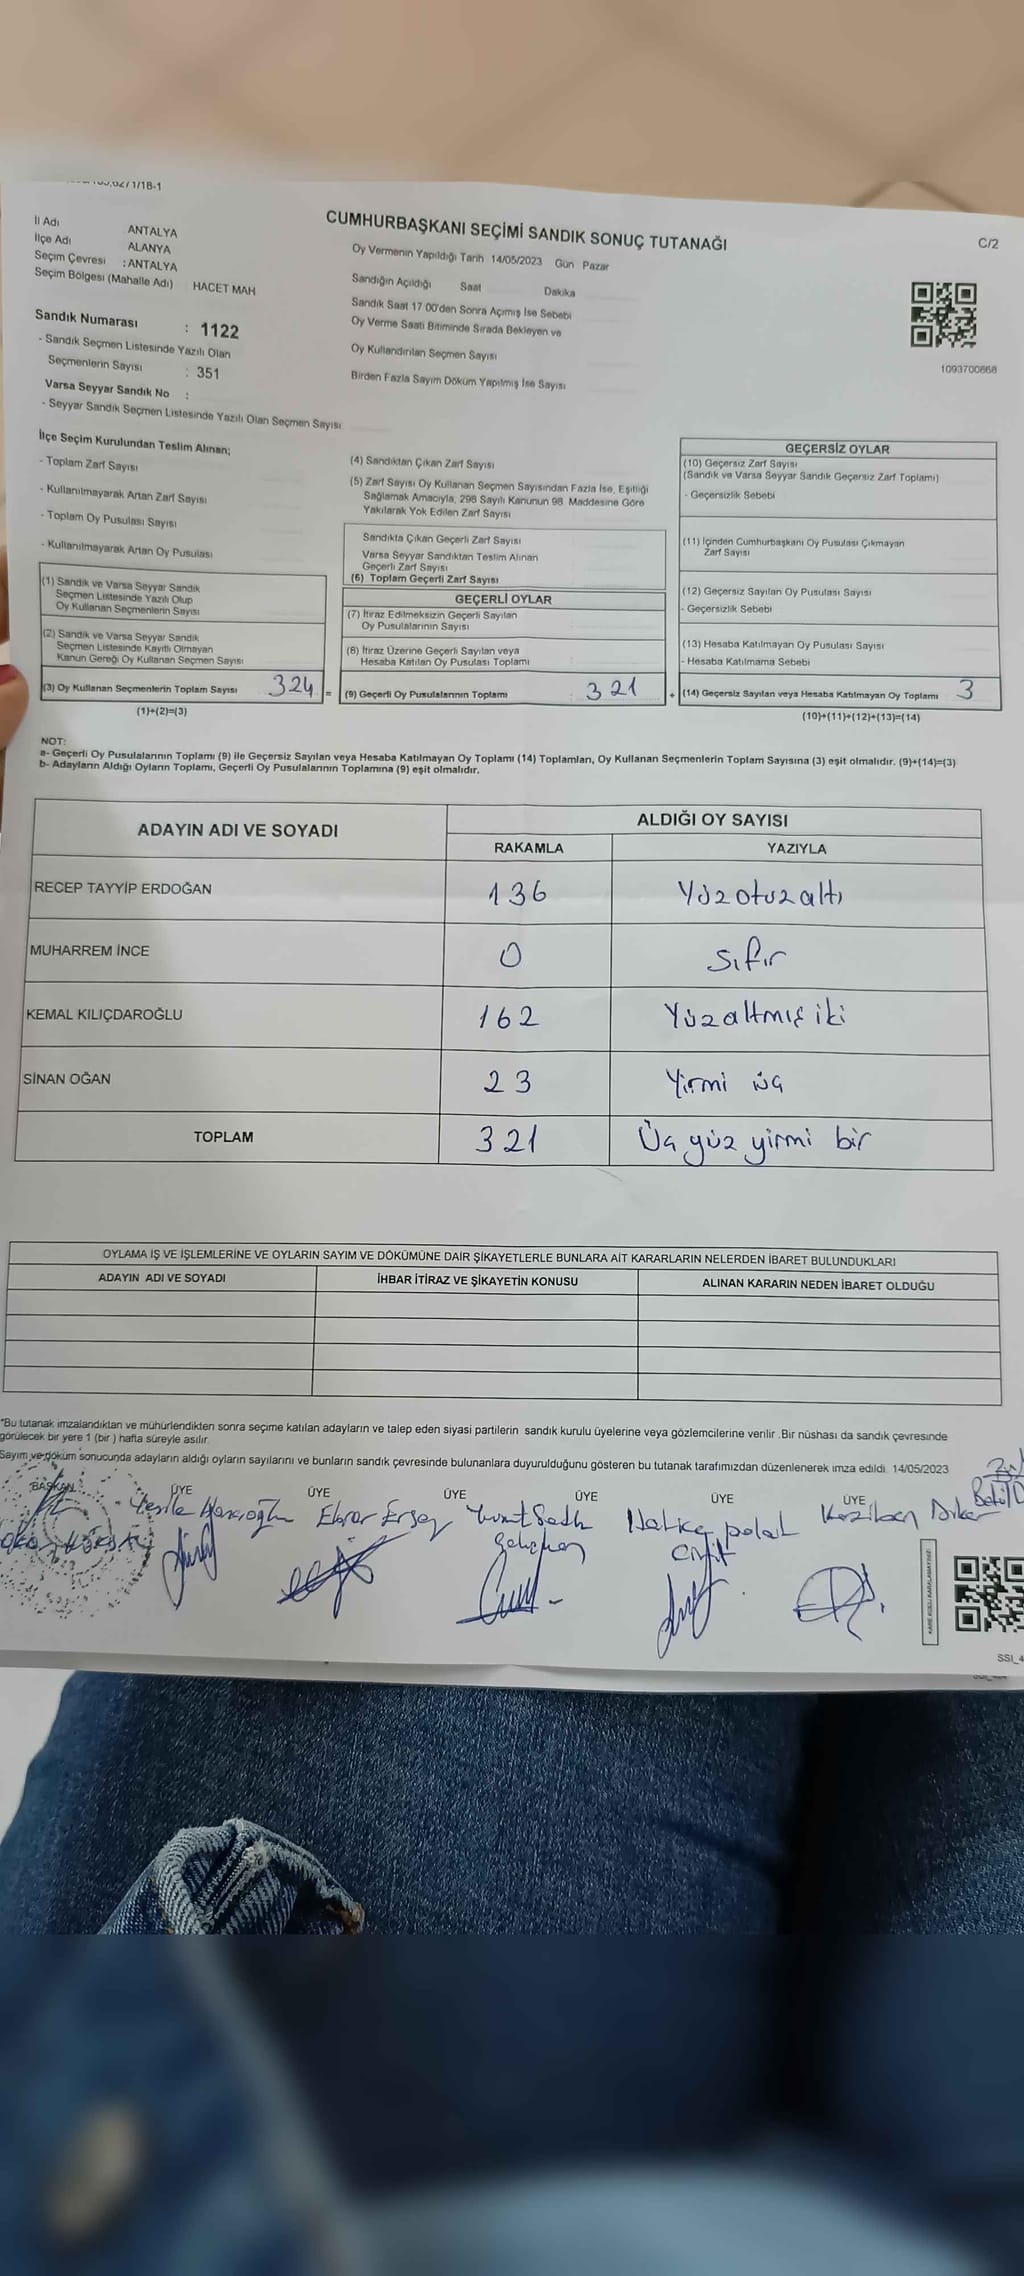 CUMHURBAŞKANI SEÇİMİ SANDIK SONUÇ TUTANAĞI
C/2
İl Adı ANTALYA
İlçe Adı ALANYA
Seçim Çevresi : ANTALYA
Seçim Bölgesi (Mahalle Adı) HACET MAH
Sandık Numarası : 1122
- Sandık Seçmen Listesinde Yazılı Olan
Seçmenlerin Sayısı : 351
Varsa Seyyar Sandık No :
- Seyyar Sandık Seçmen Listesinde Yazılı Olan Seçmen Sayısı
Oy Vermenin Yapıldığı Tarih 14/05/2023 Gün Pazar
Sandığın Açıldığı Saat Dakika
Sandık Saat 17 00'den Sonra Açımış İse Sebebi
Oy Verme Saati Bitiminde Sırada Bekleyen ve
Oy Kullandırılan Seçmen Sayısı
Birden Fazla Sayım Döküm Yapılmış İse Sayısı
1093700868
İlçe Seçim Kurulundan Teslim Alınan;
- Toplam Zarf Sayısı
- Kullanılmayarak Artan Zarf Sayısı
- Toplam Oy Pusulası Sayısı
- Kullanılmayarak Artan Oy Pusulası
(1) Sandık ve Varsa Seyyar Sandık
Seçmen Listesinde Yazılı Olup
Oy Kullanan Seçmenlerin Sayısı
(2) Sandık ve Varsa Seyyar Sandık
Seçmen Listesinde Kayıtlı Olmayan
Kanun Gereği Oy Kullanan Seçmen Sayısı
(3) Oy Kullanan Seçmenlerin Toplam Sayısı 324 =
(1)+(2)=(3)
(4) Sandıktan Çıkan Zarf Sayısı
(5) Zarf Sayısı Oy Kullanan Seçmen Sayısından Fazla İse, Eşitliği
Sağlamak Amacıyla, 298 Sayılı Kanunun 98. Maddesine Göre
Yakılarak Yok Edilen Zarf Sayısı
Sandıkta Çıkan Geçerli Zarf Sayısı
Varsa Seyyar Sandıktan Teslim Alınan
Geçerli Zarf Sayısı
(6) Toplam Geçerli Zarf Sayısı
GEÇERLİ OYLAR
(7) İtiraz Edilmeksizin Geçerli Sayılan
Oy Pusulalarının Sayısı
(8) İtiraz Üzerine Geçerli Sayılan veya
Hesaba Katılan Oy Pusulası Toplamı
(9) Geçerli Oy Pusulalarının Toplamı 321 +
GEÇERSİZ OYLAR
(10) Geçersiz Zarf Sayısı
(Sandık ve Varsa Seyyar Sandık Geçersiz Zarf Toplamı)
- Geçersizlik Sebebi
(11) İçinden Cumhurbaşkanı Oy Pusulası Çıkmayan
Zarf Sayısı
(12) Geçersiz Sayılan Oy Pusulası Sayısı
- Geçersizlik Sebebi
(13) Hesaba Katılmayan Oy Pusulası Sayısı
- Hesaba Katılmama Sebebi
(14) Geçersiz Sayılan veya Hesaba Katılmayan Oy Toplamı 3
(10)+(11)+(12)+(13)=(14)
NOT:
a- Geçerli Oy Pusulalarının Toplamı (9) ile Geçersiz Sayılan veya Hesaba Katılmayan Oy Toplamı (14) Toplamları, Oy Kullanan Seçmenlerin Toplam Sayısına (3) eşit olmalıdır. (9)+(14)=(3)
b- Adayların Aldığı Oyların Toplamı, Geçerli Oy Pusulalarının Toplamına (9) eşit olmalıdır.
ADAYIN ADI VE SOYADI ALDIĞI OY SAYISI
RAKAMLA YAZIYLA
RECEP TAYYİP ERDOĞAN 136 Yüzotuzaltı
MUHARREM İNCE 0 sıfır
KEMAL KILIÇDAROĞLU 162 Yüzaltmış iki
SİNAN OĞAN 23 Yirmi üç
TOPLAM 321 Üç yüz yirmi bir
OYLAMA İŞ VE İŞLEMLERİNE VE OYLARIN SAYIM VE DÖKÜMÜNE DAİR ŞİKAYETLERLE BUNLARA AİT KARARLARIN NELERDEN İBARET BULUNDUKLARI
ADAYIN ADI VE SOYADI İHBAR İTİRAZ VE ŞİKAYETİN KONUSU ALINAN KARARIN NEDEN İBARET OLDUĞU
*Bu tutanak imzalandıktan ve mühürlendikten sonra seçime katılan adayların ve talep eden siyasi partilerin sandık kurulu üyelerine veya gözlemcilerine verilir .Bir nüshası da sandık çevresinde
görülecek bir yere 1 (bir ) hafta süreyle asılır.
Sayım ve döküm sonucunda adayların aldığı oyların sayılarını ve bunların sandık çevresinde bulunanlara duyurulduğunu gösteren bu tutanak tarafımızdan düzenlenerek imza edildi. 14/05/2023
BAŞKAN ÜYE ÜYE ÜYE ÜYE ÜYE ÜYE
Ebrar Ersoy
Hatice polat
Keziban